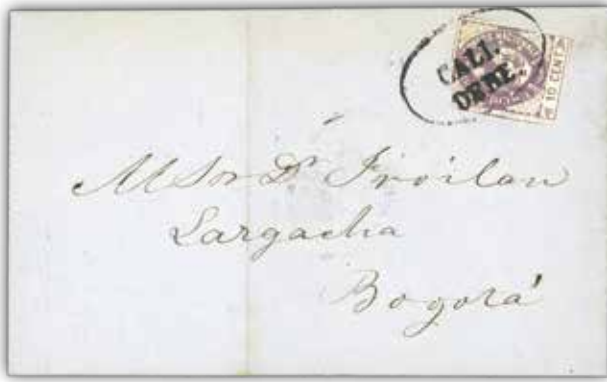 CALI.
DE BE.
10 CENT
Al Sor Dr Froilan
Largacha
Bogotá